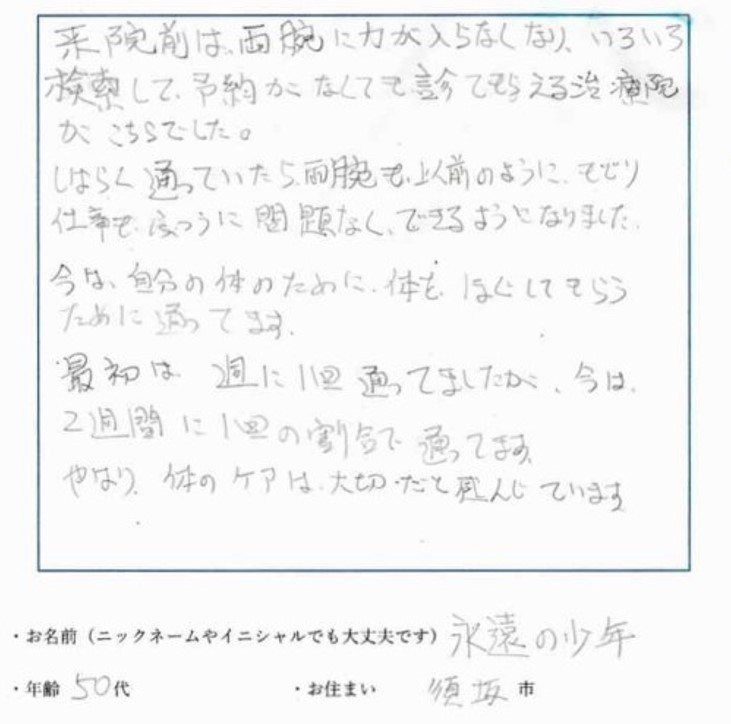 来院前は、両腕に力が入らなくなり、いろいろ
検索して、予約がなくても診てもらえる治療院
が こちらでした。
しばらく 通っていたら、両腕も、以前のように、もどり
仕事も、ふつうに 問題なく、できるようになりました。
今は、自分の体のために、体を ほぐしてもらう
ために 通ってます。
最初は 週に1回 通ってましたが、今は、
2週間に1回の割合で 通ってます。
やはり、体の ケアは、大切だと 感じています
・お名前（ニックネームやイニシャルでも大丈夫です） 永遠の少年
・年齢 50代 ・お住まい 須坂 市